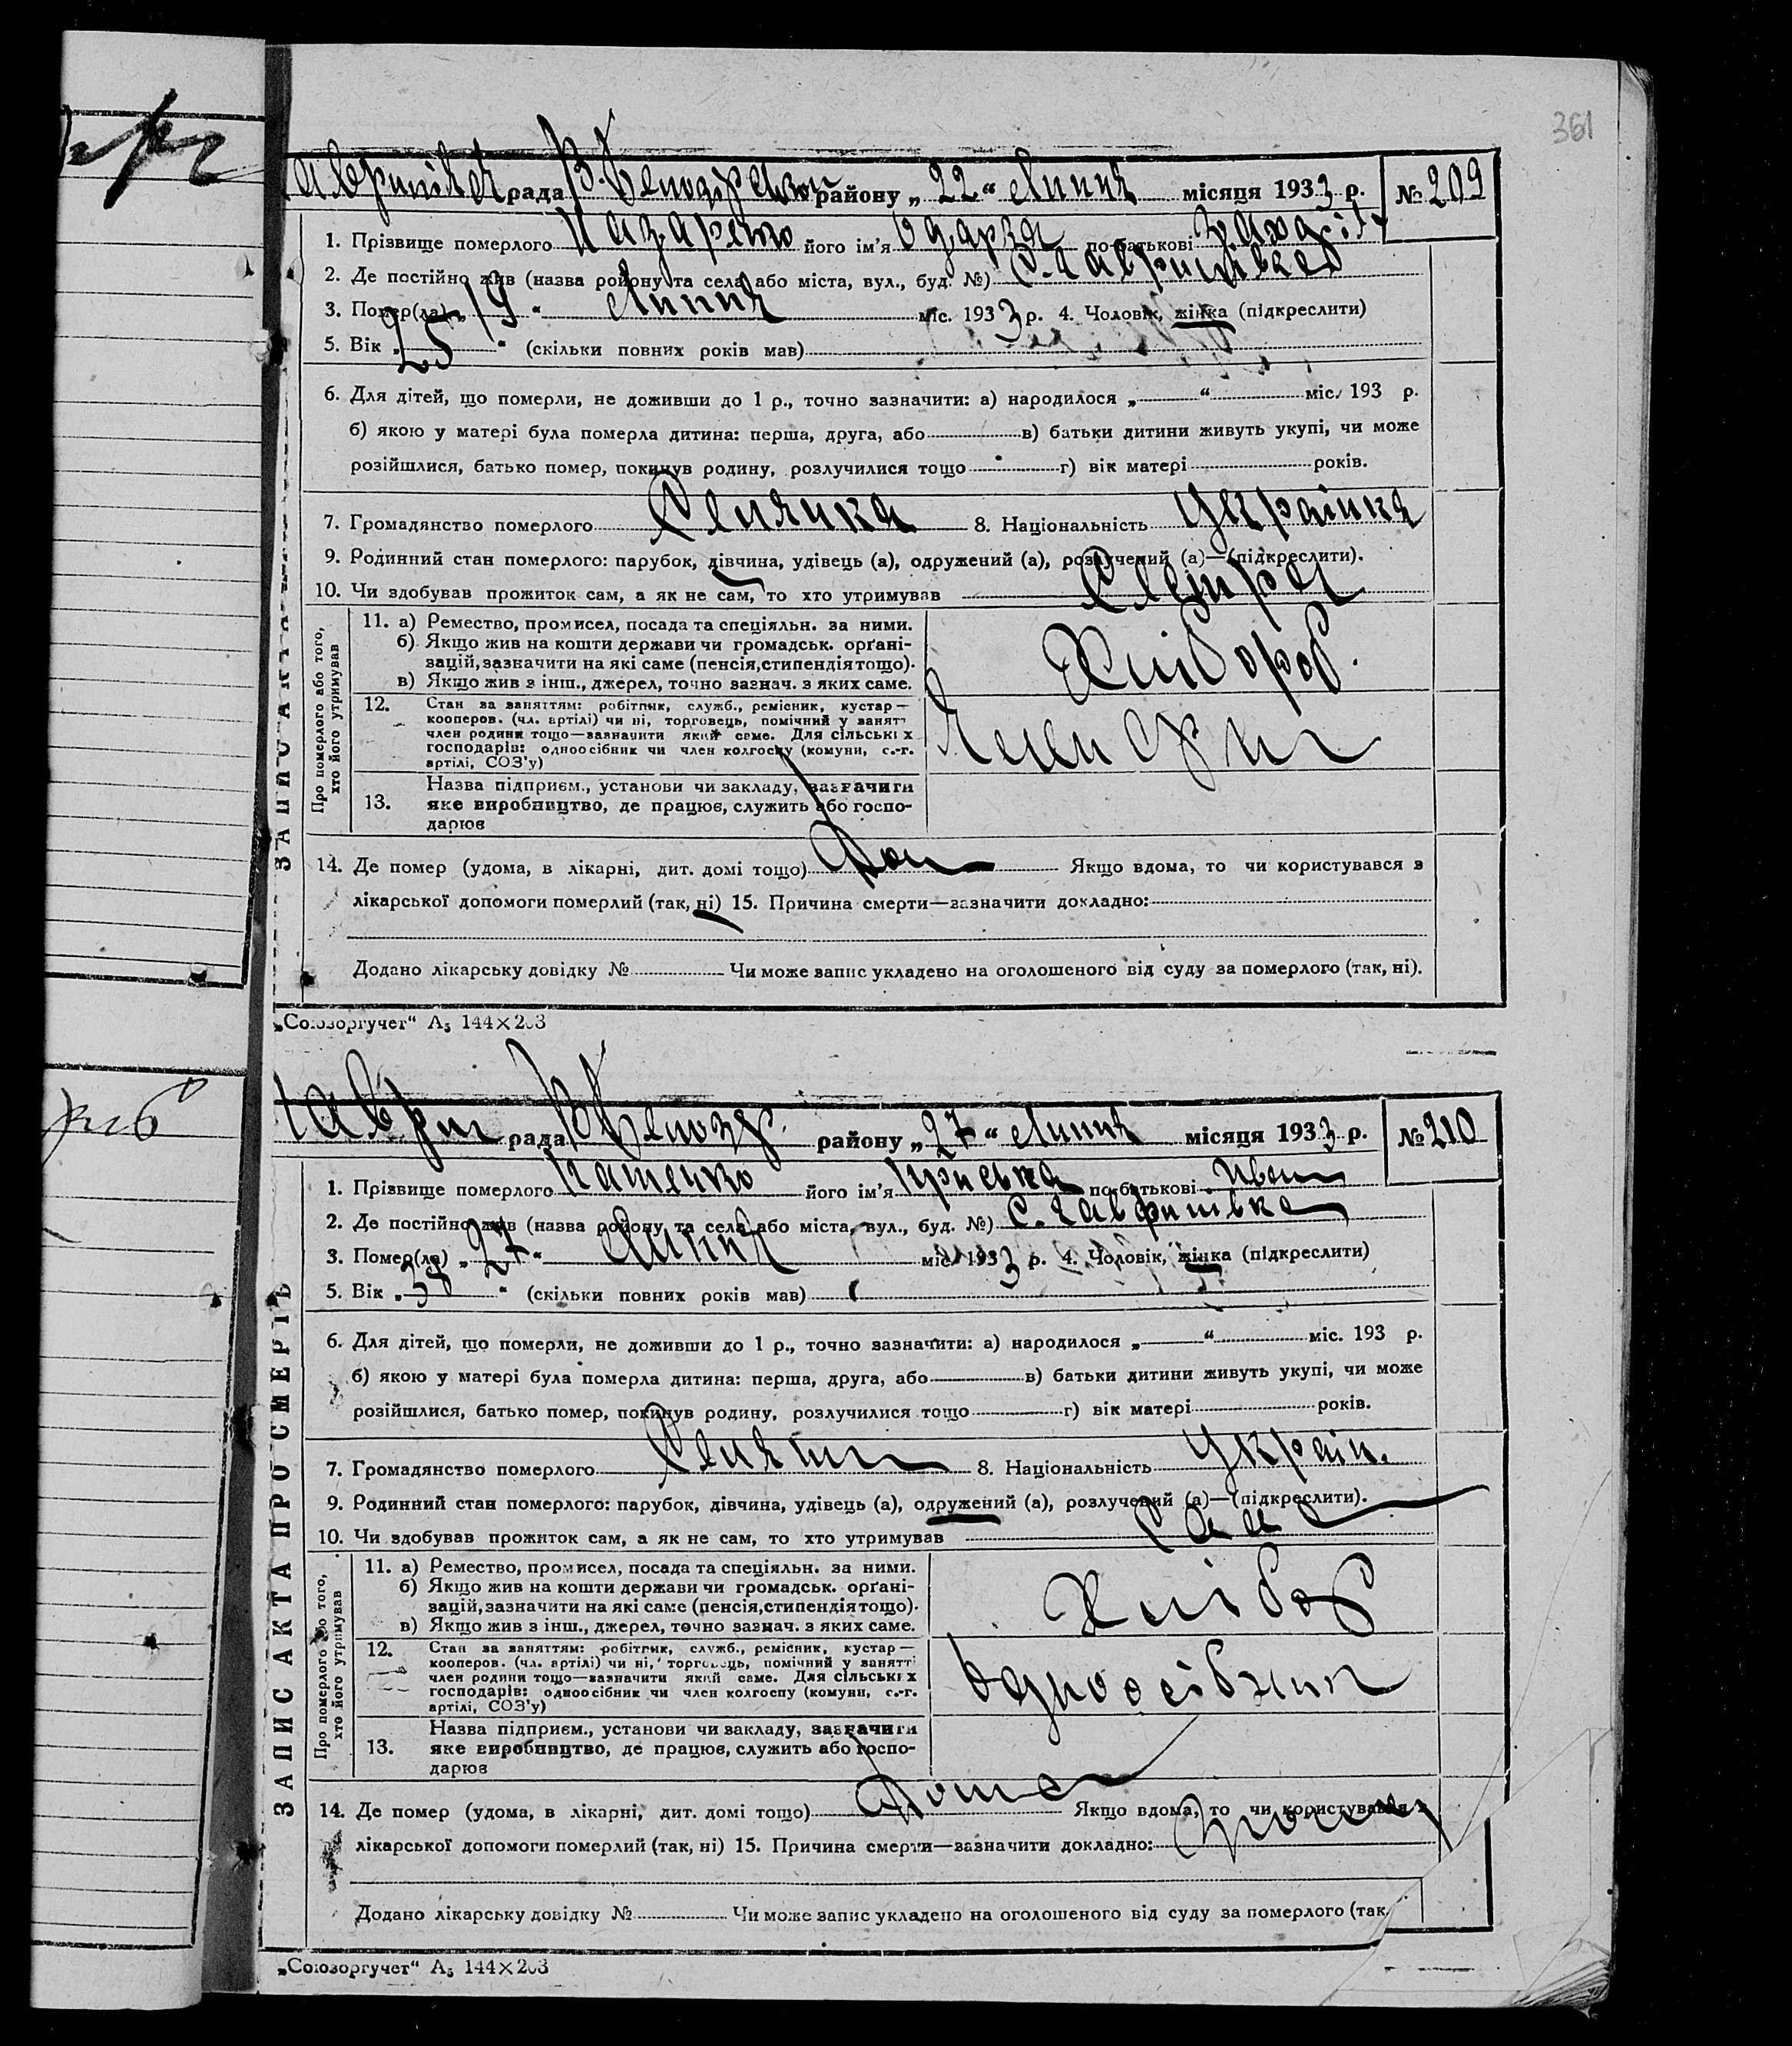 361
рада В. Білозірського району „22“ Липня місяця 1933 р. № 209
1. Прізвище померлого Назаренко його ім'я Одарка по-батькові
2. Де постійно жив (назва району та села або міста, вул., буд. №) с. Гавришівка
3. Помер(ла) „19“ Липня міс. 1933 р. 4. Чоловік, жінка (підкреслити)
5. Вік „25“ (скільки повних років мав)
6. Для дітей, що померли, не доживши до 1 р., точно зазначити: а) народилося „ “ міс. 193 р.
б) якою у матері була померла дитина: перша, друга, або в) батьки дитини живуть укупі, чи може
розійшлися, батько помер, покинув родину, розлучилися тощо г) вік матері років.
7. Громадянство померлого Селянка 8. Національність Українка
9. Родинний стан померлого: парубок, дівчина, удівець (а), одружений (а), розлучений (а)—(підкреслити).
10. Чи здобував прожиток сам, а як не сам, то хто утримував Сестра
ЗАПИС АКТА
Про померлого або того, хто його утримував
11. а) Ремество, промисел, посада та спеціяльн. за ними.
б) Якщо жив на кошти держави чи громадськ. орґані-
зацій, зазначити на які саме (пенсія, стипендія тощо).
в) Якщо жив з інш., джерел, точно зазнач. з яких саме.
Хлібороб.
12. Стан за заняттям: робітник, служб., ремісник, кустар—
кооперов. (чл. артілі) чи ні, торговець, помічний у занятт
член родини тощо—зазначити який саме. Для сільських
господарів: одноосібник чи член колгоспу (комуни, с.-г.
артілі, СОЗ'у)
13. Назва підприєм., установи чи закладу, зазначити
яке виробництво, де працює, служить або госпо-
дарює
14. Де помер (удома, в лікарні, дит. домі тощо) Дом Якщо вдома, то чи користувався з
лікарської допомоги померлий (так, ні) 15. Причина смерти—зазначити докладно:
Додано лікарську довідку № Чи може запис укладено на оголошеного від суду за померлого (так, ні).
„Союзоргучет“ А5 144×203
Гаври рада В Білозір. району „27“ Липня місяця 1933 р. № 210
1. Прізвище померлого його ім'я Приська по-батькові Иван
2. Де постійно жив (назва району та села або міста, вул., буд. №) с. Гавришівка
3. Помер(ла) „27“ Липня міс. 1933 р. 4. Чоловік, жінка (підкреслити)
5. Вік „38“ (скільки повних років мав)
6. Для дітей, що померли, не доживши до 1 р., точно зазначити: а) народилося „ “ міс. 193 р.
б) якою у матері була померла дитина: перша, друга, або в) батьки дитини живуть укупі, чи може
розійшлися, батько помер, покинув родину, розлучилися тощо г) вік матері років.
7. Громадянство померлого Селян 8. Національність Україн.
9. Родинний стан померлого: парубок, дівчина, удівець (а), одружений (а), розлучений (а)—(підкреслити).
10. Чи здобував прожиток сам, а як не сам, то хто утримував Сама
ЗАПИС АКТА ПРО СМЕРТЬ
Про померлого або того, хто його утримував
11. а) Ремество, промисел, посада та спеціяльн. за ними.
б) Якщо жив на кошти держави чи громадськ. орґані-
зацій, зазначити на які саме (пенсія, стипендія тощо).
в) Якщо жив з інш., джерел, точно зазнач. з яких саме.
Хлібор
12. Стан за заняттям: робітник, служб., ремісник, кустар—
кооперов. (чл. артілі) чи ні, торговець, помічний у занятті
член родини тощо—зазначити який саме. Для сільських
господарів: одноосібник чи член колгоспу (комуни, с.-г.
артілі, СОЗ'у)
Одноосібник
13. Назва підприєм., установи чи закладу, зазначити
яке виробництво, де працює, служить або госпо-
дарює
14. Де помер (удома, в лікарні, дит. домі тощо) Дома Якщо вдома, то чи користувався з
лікарської допомоги померлий (так, ні) 15. Причина смерти—зазначити докладно:
Додано лікарську довідку № Чи може запис укладено на оголошеного від суду за померлого (так,
„Союзоргучет“ А5 144×203